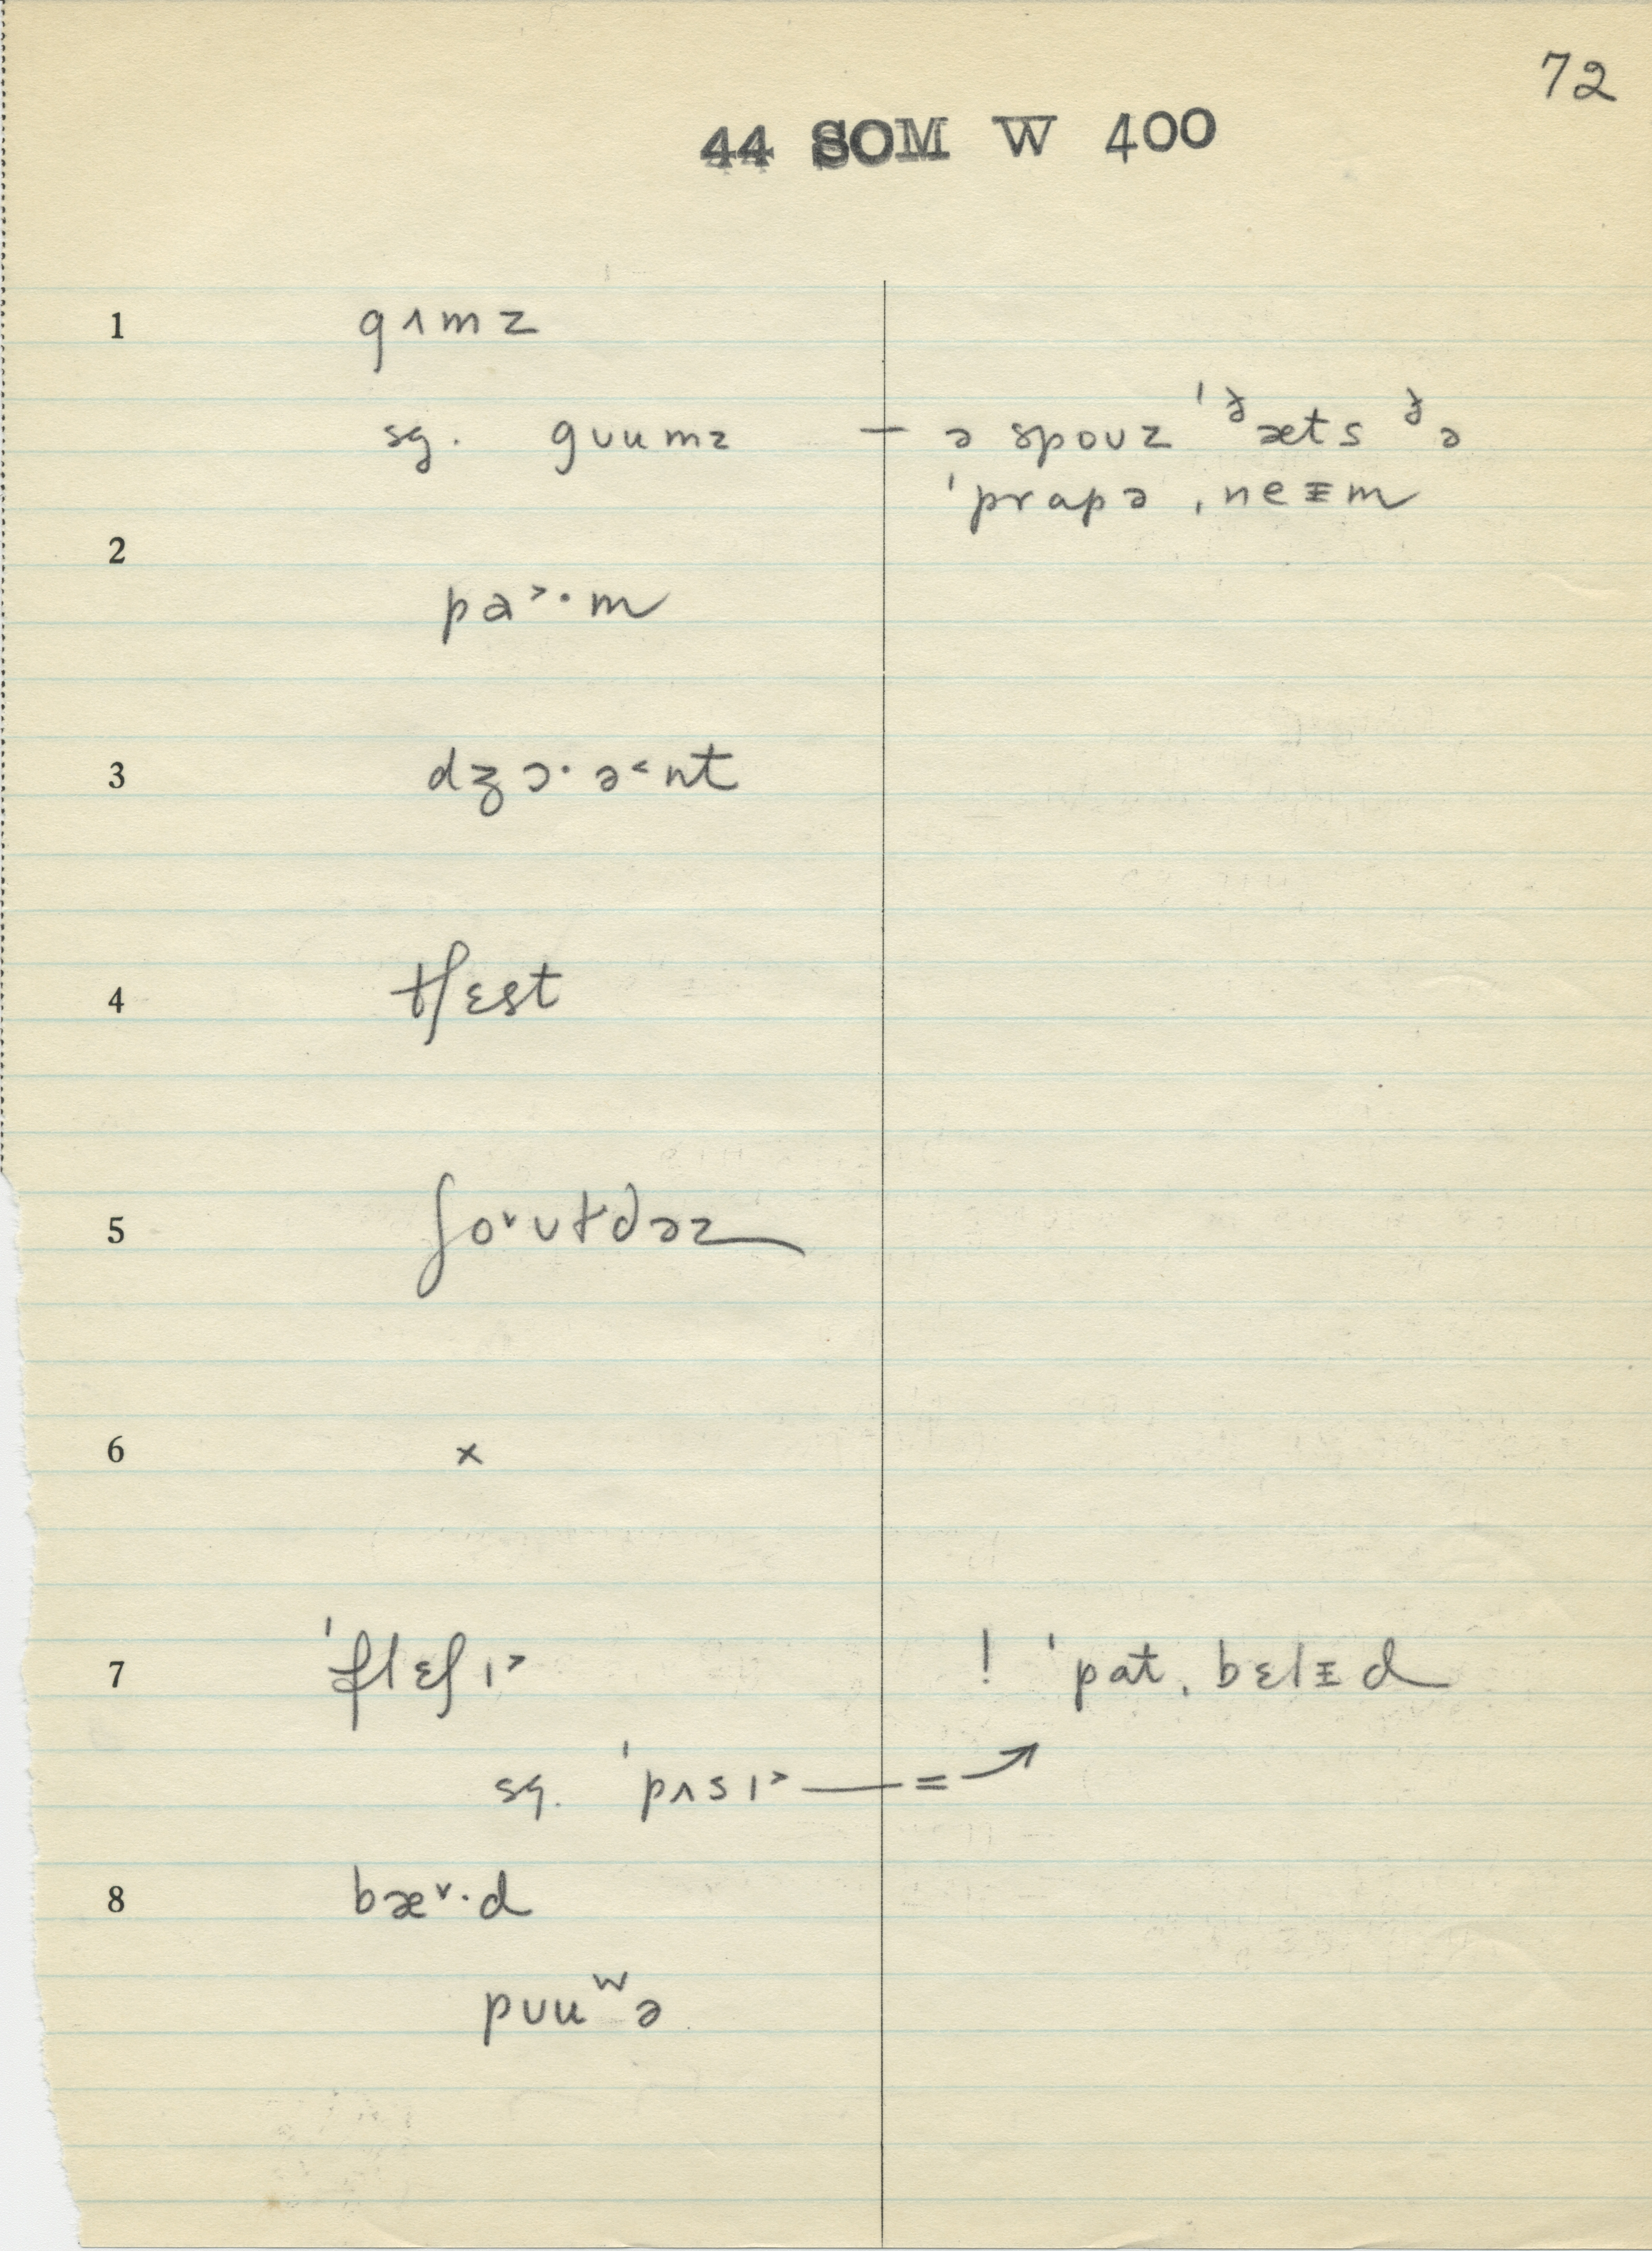 72
44 SOM W 400
1 gʌmz
sg. gʊumz — ə spoʊz ˈᶞæts ᶞə
ˈprapə ˌneᵻm
2
pa˃·m
3 dʒɔ·ə˂nt
4 tʃɛst
5 ʃo˅ʊɫdəz
6 ×
7 ˈflɛʃɪ˃ ! ˈpat ˌbɛlᵻd
sg. ˈpʌsɪ˃ — = ↗
8 bæ˅·d
pʊuʷə